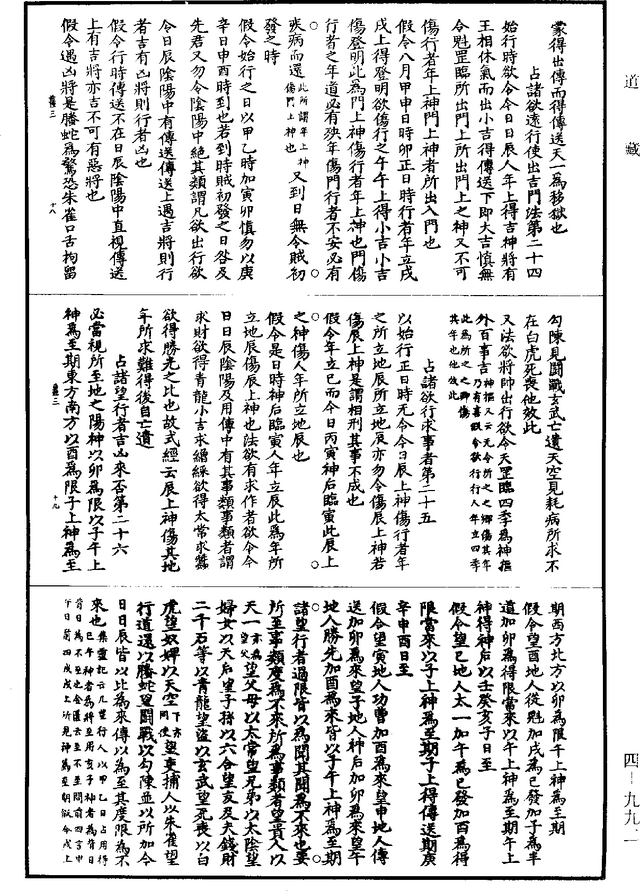 道藏
蒙得出傳而得傳送天一為移獄也
占諸欲遠行使出吉門法第二十四
始行時欲令今日日辰人年上得吉神將有
王相休氣而出小吉得傳送下即大吉慎無
令魁罡臨所出門上所出門上之神又不可
傷行者年上神門上神者所出入門也
假令八月甲申日時卯正日時行者年立戌
戌上得登明欲傷行之午午上得小吉小吉
傷登明此為門上神傷行者年上神也門傷
行者之年道必有殃年傷門行者不安必有
疾病而還此所謂年上神傷門上神也又到日無令賊初
發之時
假令始行之日以甲乙時加寅卯慎勿以庚
辛日申酉時到也若到時賊初發之日咎及
先君又勿令陰陽中絕其類謂凡欲出行欲
今日辰陰陽中有傳送傳送上遇吉將則行
者吉有凶將則行者凶也
假令行時傳送不在日辰陰陽中直視傳送
上有吉將亦吉不可有惡將也
假令遇凶將是螣蛇為驚恐朱雀口舌拘留
勾陳見鬪戰玄武亡遺天空見耗病所求不
在白虎死喪他放此
又法欲將帥出行欲令天罡臨四季為神樞
外百事吉
占諸欲行求事者第二十五
以始行正日時无令今日辰上神傷行者年
之所立地辰所立地辰亦勿令傷辰上神若
傷辰上神是謂相刑其事不成也
假令年立巳而今日丙寅神后臨寅此辰上
之神傷人年所立地辰也
假令是日時神后臨寅人年立辰此為年所
立地辰傷辰上神也法欲有求作者欲令今
日日辰陰陽及用傳中有其事類事類者謂
求財欲得青龍小吉求繒綵欲得太常求蠶
欲得勝光之比也故式經云辰上神傷其地
年所求難得後自亡遺
占諸望行者吉凶來否第二十六
必當視所至地之陽神以卯為限以子午上
神為至期東方南方以酉為限子上神為至
期西方北方以卯為限午上神為至期
假令望酉地人從魁加戌為已發加子為半
道加卯為得限當來以午上神為至期午上
神得神后以壬癸亥子日至
假令望巳地人太一加午為已發加酉為得
限當來以子上神為至期子上得傳送期庚
辛申酉日至
假令望寅地人功曹加酉為來望申地人傳
送加卯為來望子地人神后加卯為來望午
地人勝先加酉為來皆以子午上神為至期
諸望行者過限皆以為聞其聞為不來也要
所至事類度為不來所為事類者望貴人以
天一亦為望父望父母以太常望兄弟以太陰望
婦女以天后望子孫以六合望友及夫錢財
二千石等以青龍望盜以玄武望死喪以白
虎望奴婢以天空下亦同使望吏捕人以朱雀望
行道還以螣蛇望鬪戰以勾陳並以所加今
日日辰皆以比為來傳以為至其度限為不
來也
四—九九二